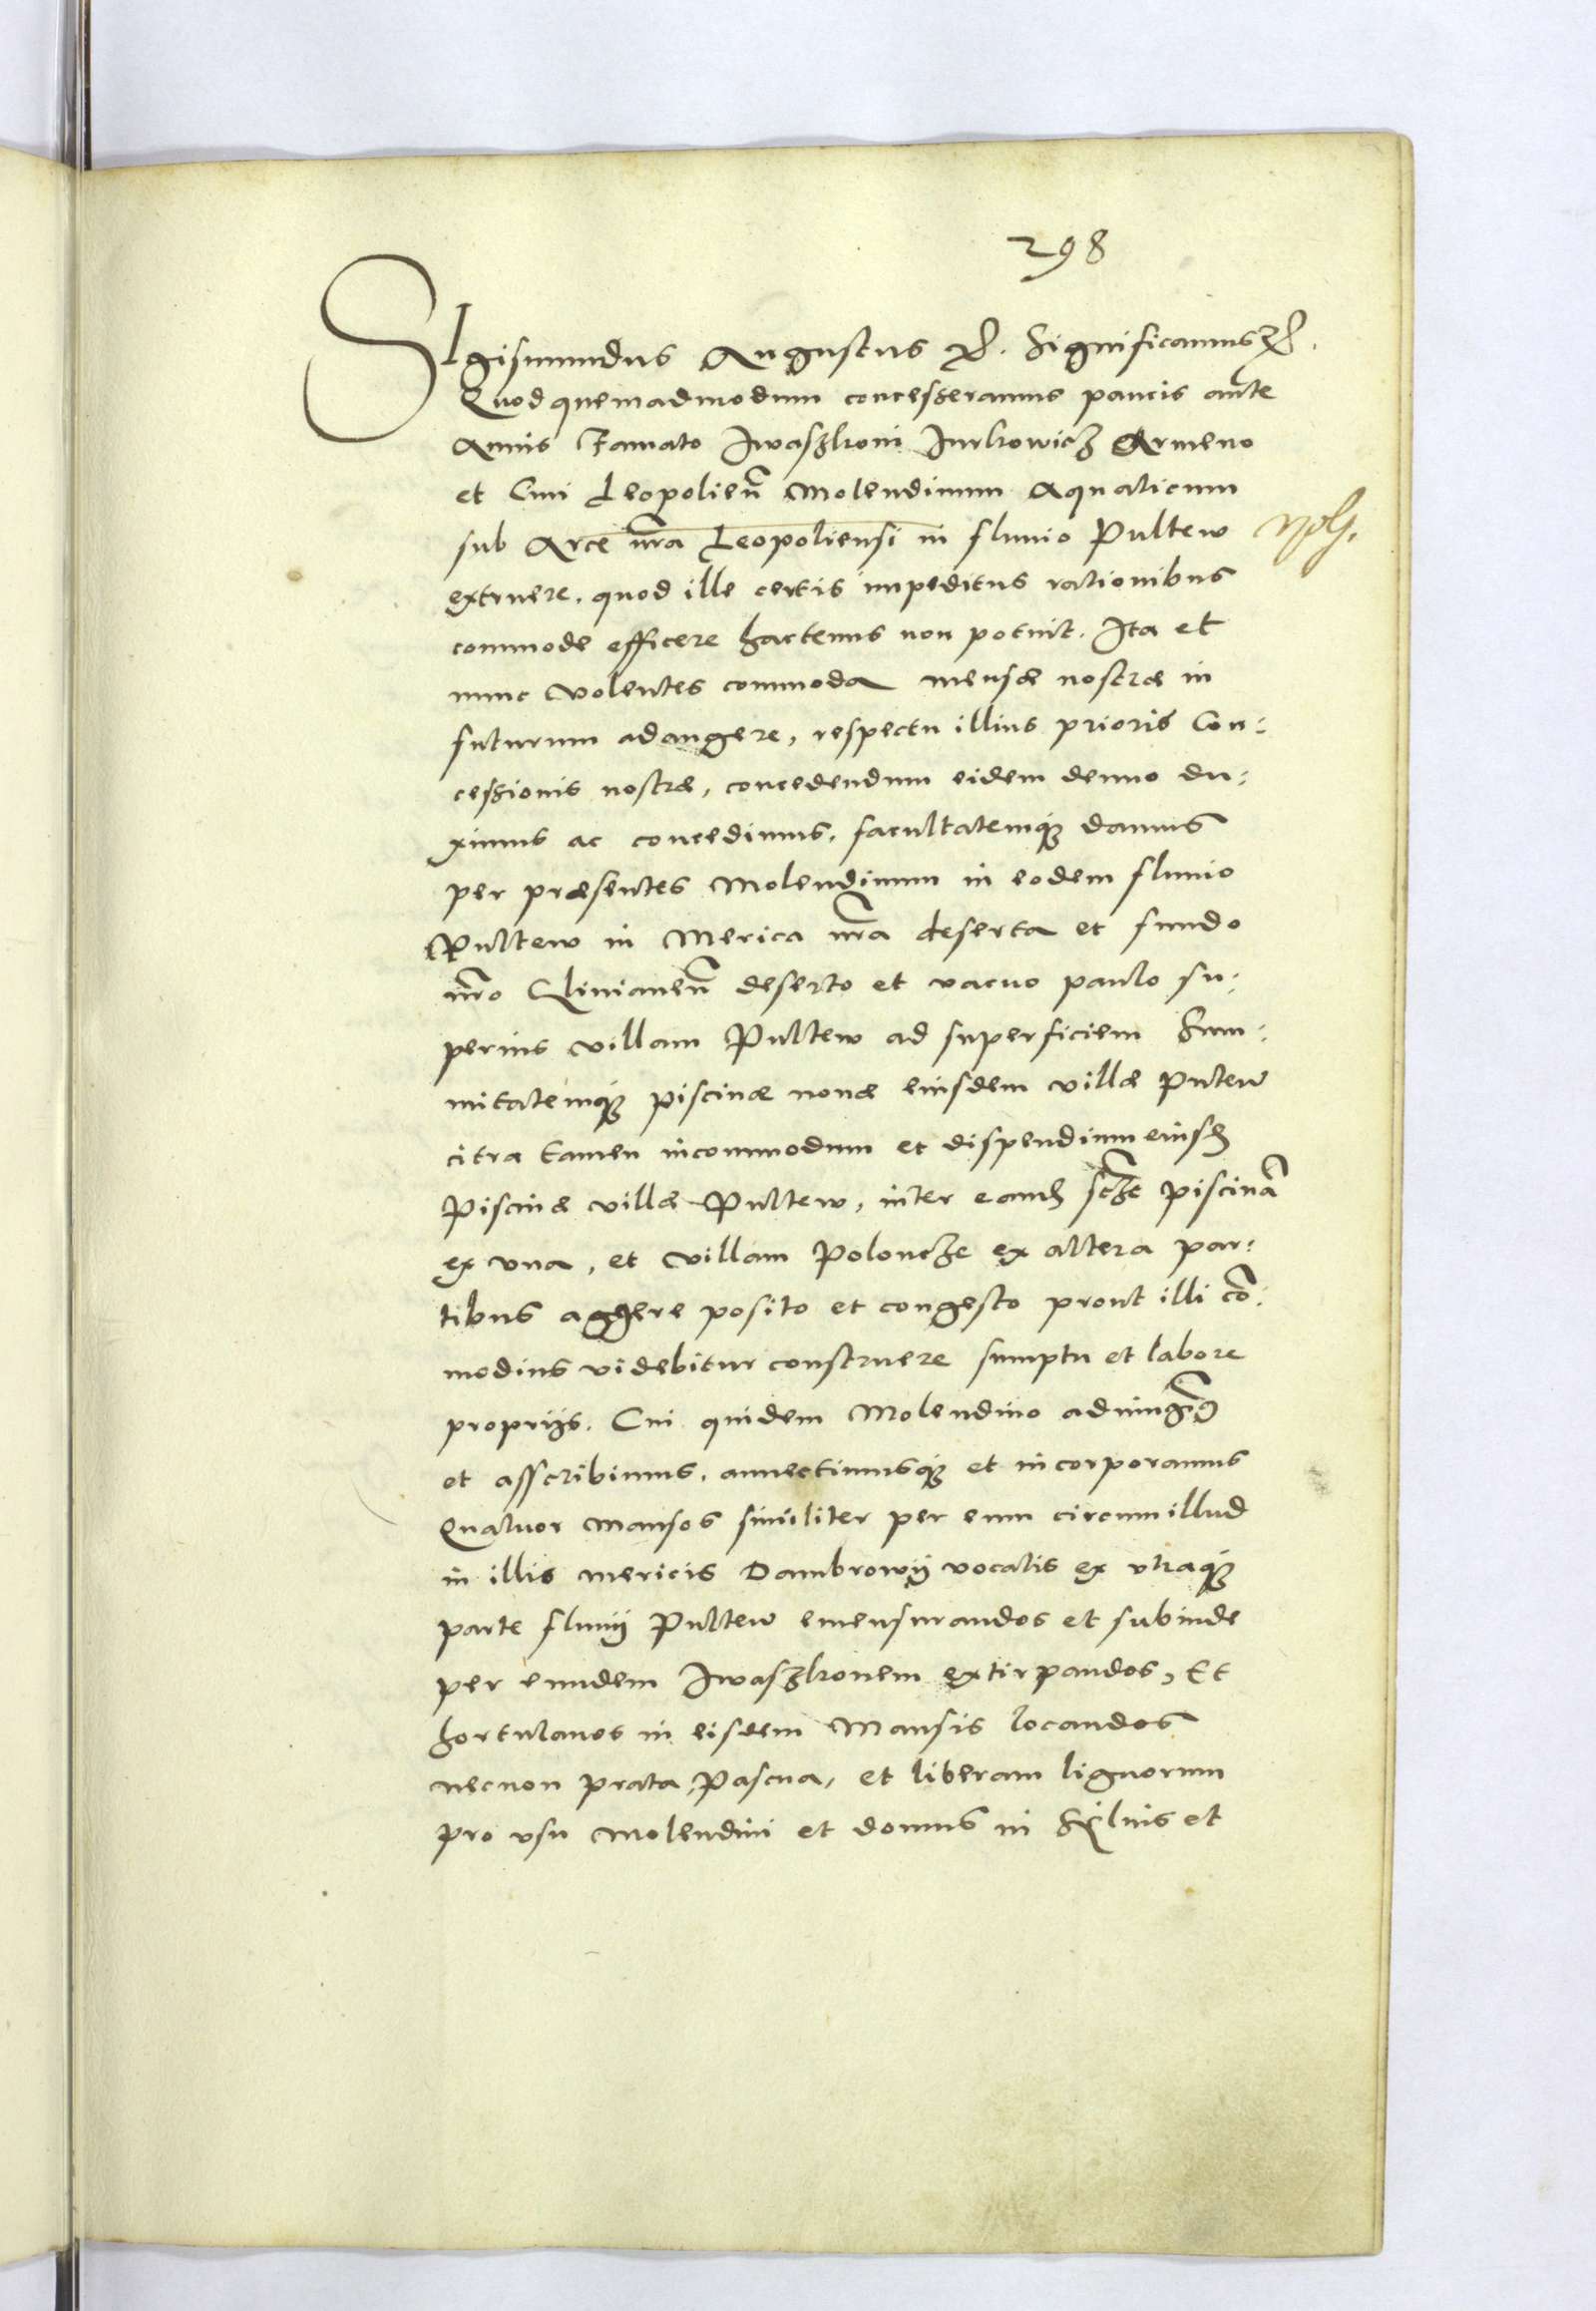 298
SIgismundus Augustus etc. Significamus etc.
Quod quemadmodum concesseramus paucis ante
Annis Famato Iwaszkoni Iurkowicz Armeno
et Civi Leopolien̄ Molendinum Aquaticum
sub Arce nr̄a Leopoliensi in fluvio Pultew
extruere, quod ille certis impeditus rationibus
commode efficere hactenus non potuit. Ita et
nunc volentes commoda mensæ nostræ in
futurum adaugere, respectu illius prioris Con:
cessionis nostræ, concedendum eidem denuo du:
ximus ac concedimus, facultatemq; damus
per præsentes Molendinum in eodem fluvio
Pultew in Merica nr̄a deserta et fundo
nr̄o Glinianen̄ deserto et vacuo paulo su:
perius villam Pultew ad superficiem Sum:
mitatemq; piscinæ novæ eiusdem villæ Putew
citra tamen incommodum et dispendium eiusd
Piscinæ villæ Pultew, inter eand sczt piscinā
ex una, et villam Poloncze ex altera par:
tibus aggere posito et congesto prout illi cō:
modius videbitur construere sumptu et labore
proprijs. Cui quidem Molendino adiungim9
et asscribimus, annectimusq; et incorporamus
Quatuor Mansos similiter per eum circum illud
in illis mericis Dambrowij vocatis ex utraq;
parte fluvij Pultew emensurandos et subinde
per eundem Iwaszkonem extirpandos, Et
hortulanos in eisdem Mansis locandos
necnon prata, Pascua, et liberam lignorum
pro usu Molendini et domus in Sylvis et